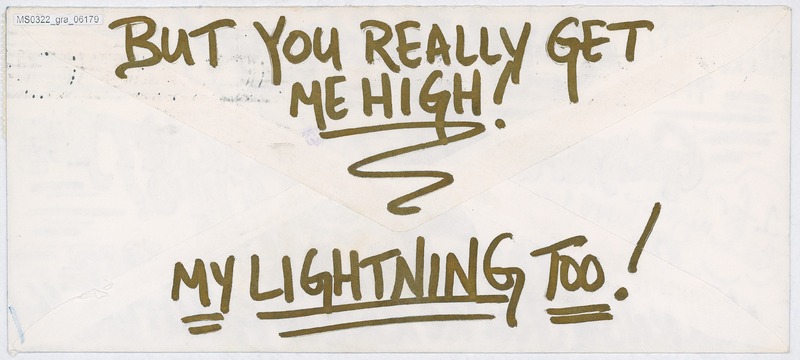 MS0322_gra_06179
BUT YOU REALLY GET
ME HIGH!
MY LIGHTNING TOO!